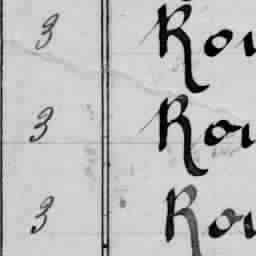 3 Rou
3 Rou
3 Rou